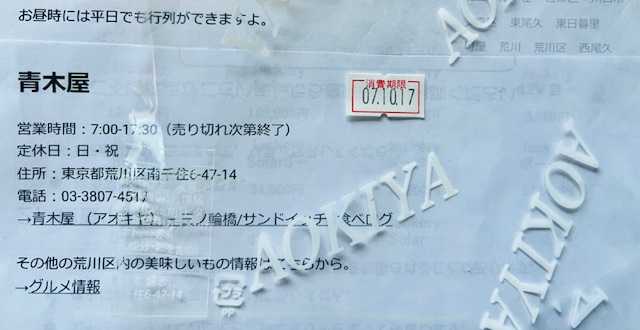 お昼時には平日でも行列ができますよ。
東尾久 東日暮里
荒川 荒川区 西尾久
AOKIYA
青木屋
消費期限
07.10.17
営業時間:7:00-17:30(売り切れ次第終了)
定休日:日・祝
住所:東京都荒川区南千住6-47-14
電話:03-3807-4517
→青木屋 (アオキヤ) - 三ノ輪橋/サンドイッチ 食べログ
AOKIYA
AOKIYA
その他の荒川区内の美味しいもの情報はこちらから。
→グルメ情報
プラ